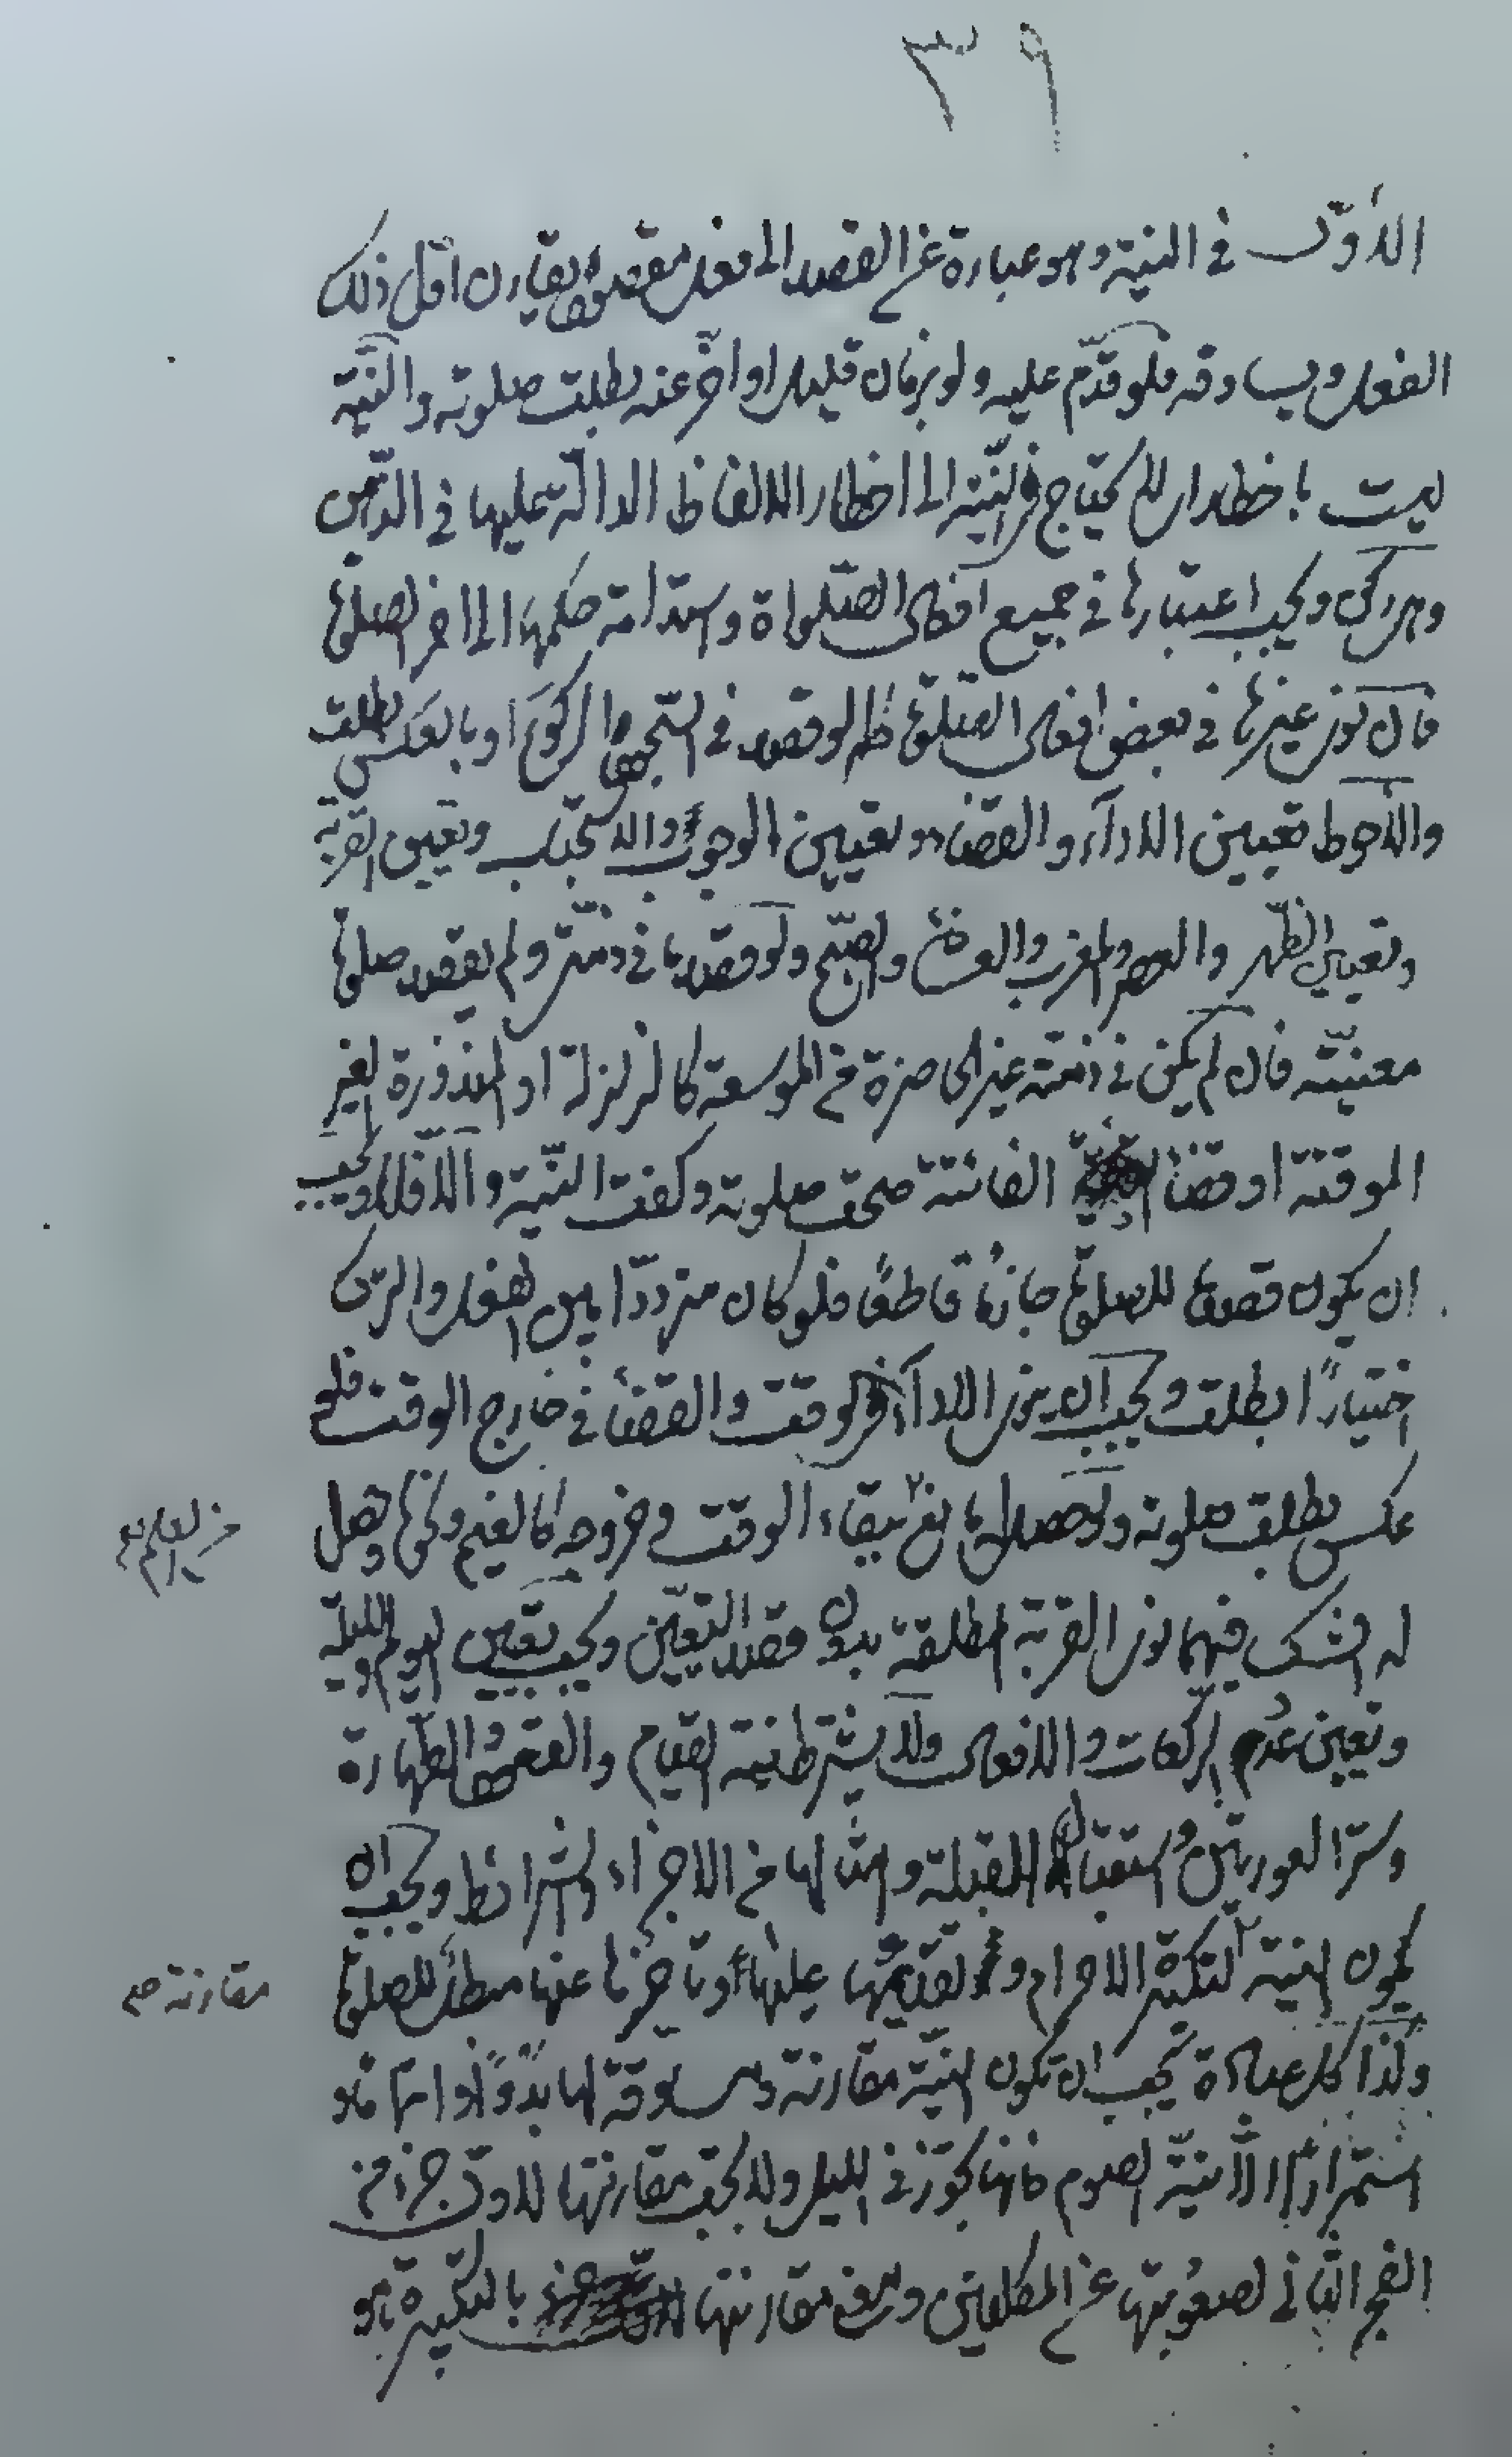 ٣٩
الأوّل في النية وهو عبارة عن القصد الى فعل مقصود يقارن اوّل ذلك
الفعل ويساوقه فلو قدّم عليه ولو بزمان قليل او اخّر عنه بطلت صلوته والنيّة
ليست باخطار اي لا يحتاج في النيّة الى اخطار الالفاظ الدالّة عليها في الذّهن
وهي ركن ويجب اعتبارها في جميع افعال الصّلواة واستدامة حكمها الى اخر الصلوة
فان نوى غيرها في بعض افعال الصّلوة كما لو قصد في السّجود الركوع او بالعكس بطلت
والأحوط تعيين الاداء والقضاء وتعيين الوجوب والاستحباب وتعيين القربة
وتعيين الظّهر والعصر والمغرب والعشاء والصّبح ولو قصد ما في ذمّته ولم يقصد صلوة
معنيّة فان لم يكن في ذمّته غير الحاضرة من الموسعة كالزلزلة او المنذورة الغير
الموقتة او قضاء الفائتة صحت صلوته وكفت النّية والّا فلا ويجب
ان يكون قصده للصلوة جازمًا قاطعًا فلو كان متردّدا بين الفعل والترك
اختيارًا بطلت ويجب ان ينوى الاداء في الوقت والقضاء في خارج الوقت فلو
عكس بطلت صلوته ولو حصل مانع ببقاء الوقت وخروجه كالغيم ونحوه وحصل
من العلم
له الشك فيهما نوى القربة المطلقة بدون قصد التعيّن ويجب تعيين اليوم والليلة
وتعيين عدد الركعات والافعال ولا يشترط نية القيام والقعود والطّهارة
وستر العورتين واستقبال القبلة وامثالها من الاجزاء والشرائط ويجب ان
يكون النية لتكبيرة الاحرام وتقديمها عليها او تاخيرها عنها مبطل للصلوة
مقارنة صح
وكذا كل عبادة يجب ان تكون النيّة مقارنة ومساوقة لها بدوًا
استمرارًا الّا نيّة الصوم فانها تجوز في الليل ولا يجب مقارنتها لاوّل جزء من
الفجر الثاني لصعوبتها على المكلفين ومعنى مقارنتها بالتكبيرة هو